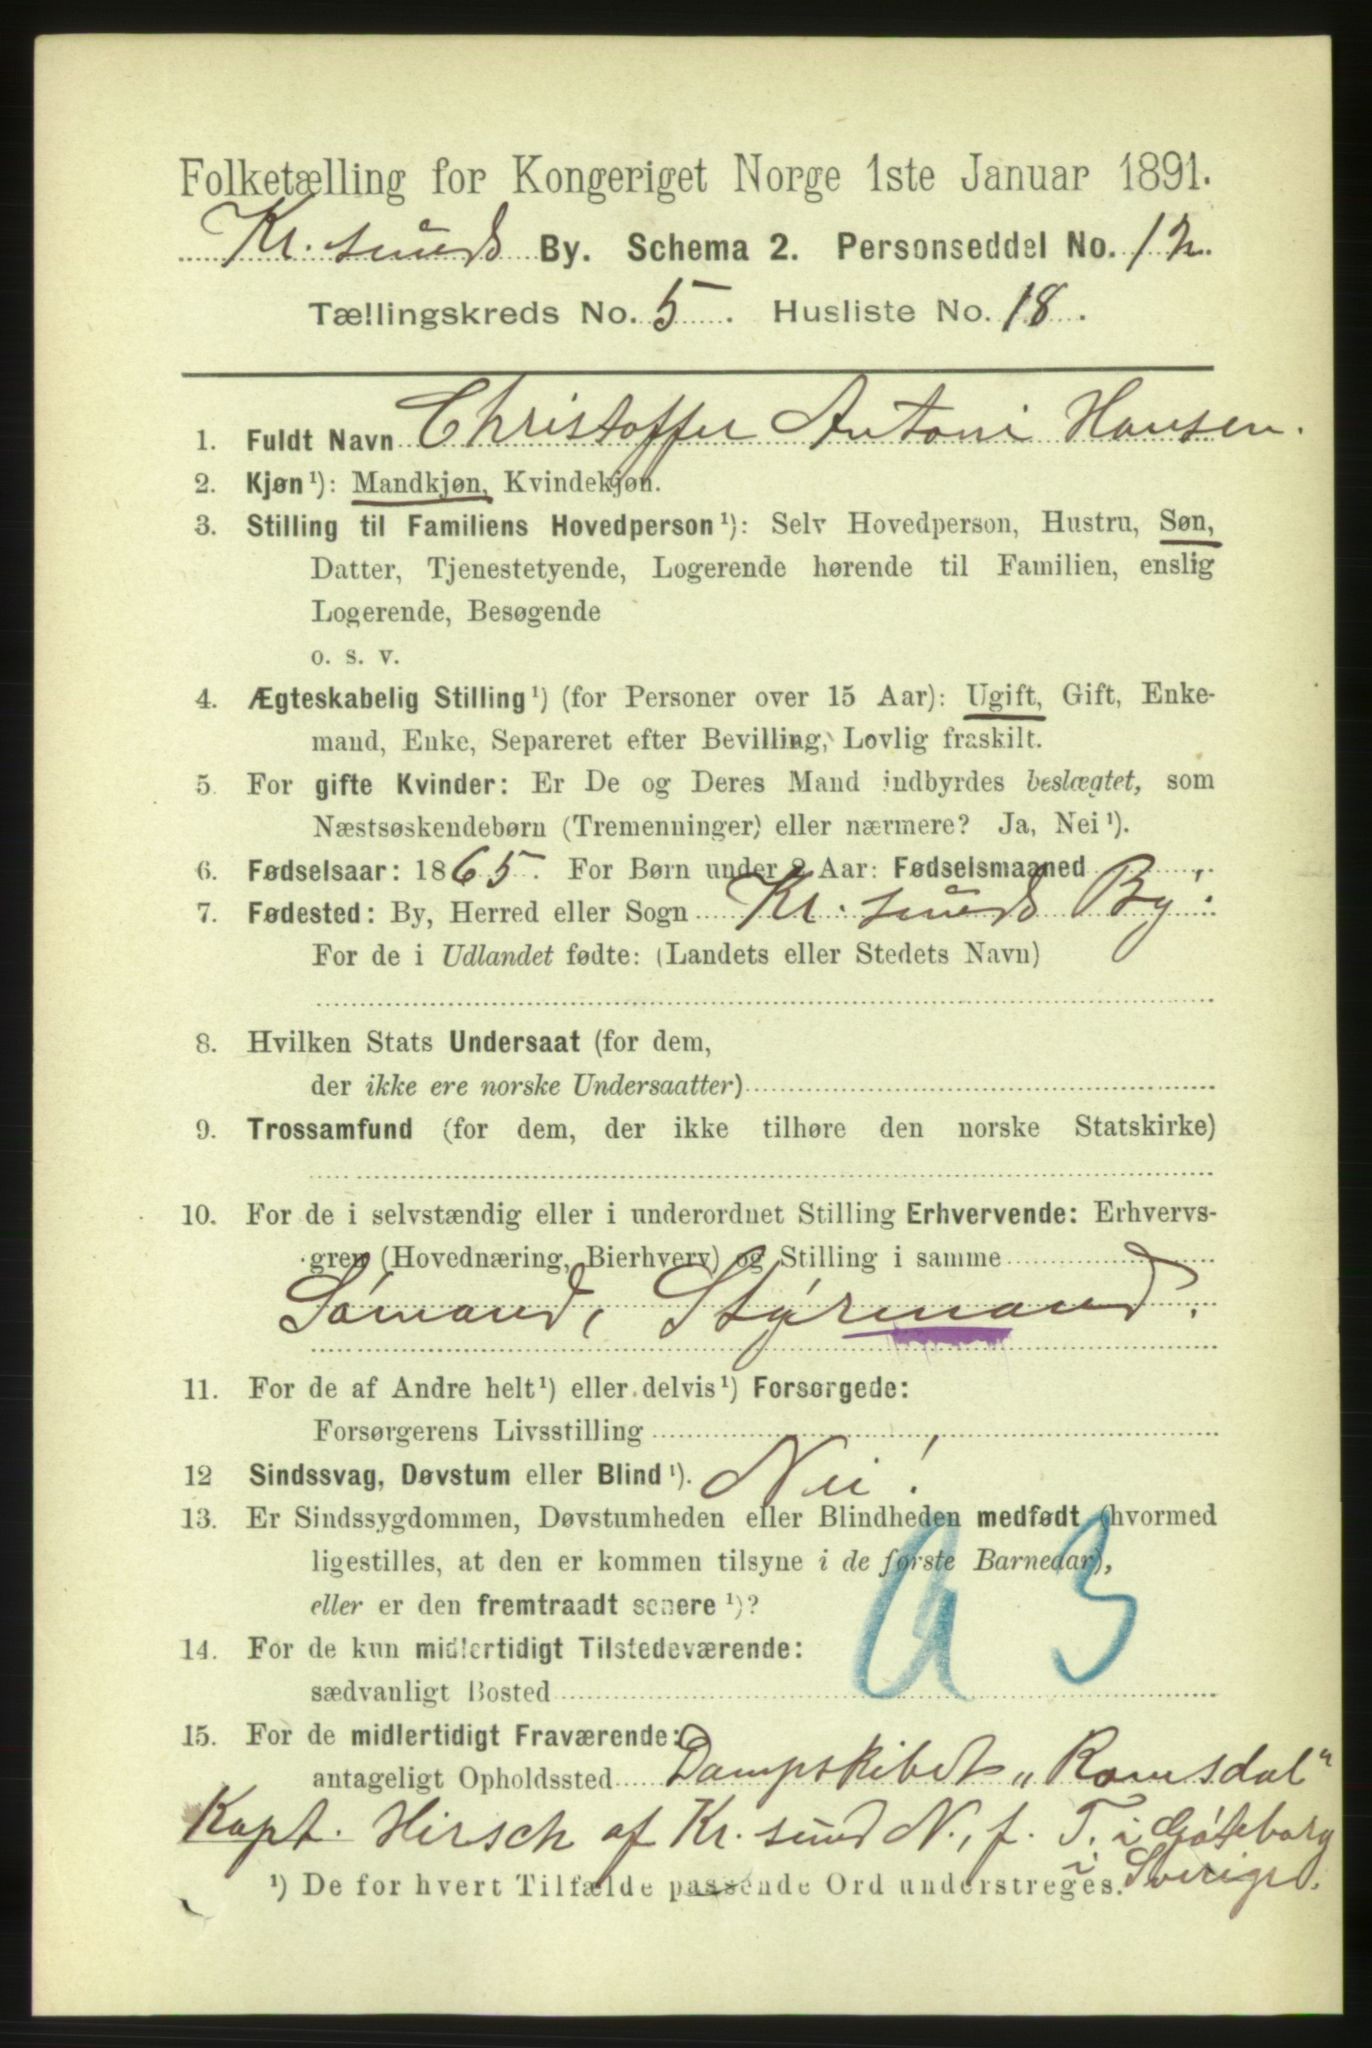 Folketælling for Kongeriget Norge 1ste Januar 1891.
Kr. sunds By. Schema 2. Personseddel No. 12.
Tællingskreds No. 5. Husliste No. 18.
1. Fuldt Navn Christoffer Antoni Hansen.
2. Kjøn ¹): Mandkjøn, Kvindekjøn.
3. Stilling til Familiens Hovedperson ¹): Selv Hovedperson, Hustru, Søn,
Datter, Tjenestetyende, Logerende hørende til Familien, enslig
Logerende, Besøgende
o. s. v.
4. Ægteskabelig Stilling ¹) (for Personer over 15 Aar): Ugift, Gift, Enke-
mand, Enke, Separeret efter Bevilling, Lovlig fraskilt.
5. For gifte Kvinder: Er De og Deres Mand indbyrdes beslægtet, som
Næstsøskendebørn (Tremenninger) eller nærmere? Ja, Nei ¹).
6. Fødselsaar: 1865. For Børn under 2 Aar: Fødselsmaaned
7. Fødested: By, Herred eller Sogn Kr. sunds By.
For de i Udlandet fødte: (Landets eller Stedets Navn)
8. Hvilken Stats Undersaat (for dem,
der ikke ere norske Undersaatter)
9. Trossamfund (for dem, der ikke tilhøre den norske Statskirke)
10. For de i selvstændig eller i underordnet Stilling Erhvervende: Erhvervs-
gren (Hovednæring, Bierhverv) og Stilling i samme
Sómand, Stýrmand.
11. For de af Andre helt ¹) eller delvis ¹) Forsørgede:
Forsørgerens Livsstilling
12 Sindssvag, Døvstum eller Blind ¹). Nei!
13. Er Sindssygdommen, Døvstumheden eller Blindheden medfødt (hvormed
ligestilles, at den er kommen tilsyne i de første Barneaar),
eller er den fremtraadt senere ¹)?
14. For de kun midlertidigt Tilstedeværende:
sædvanligt Bosted
15. For de midlertidigt Fraværende:
antageligt Opholdssted Dampskibet „Romsdal"
Kapt. Hirsch af Kr. sund N., f. T. i Góteborg
i Sverige.
¹) De for hvert Tilfælde passende Ord understreges.